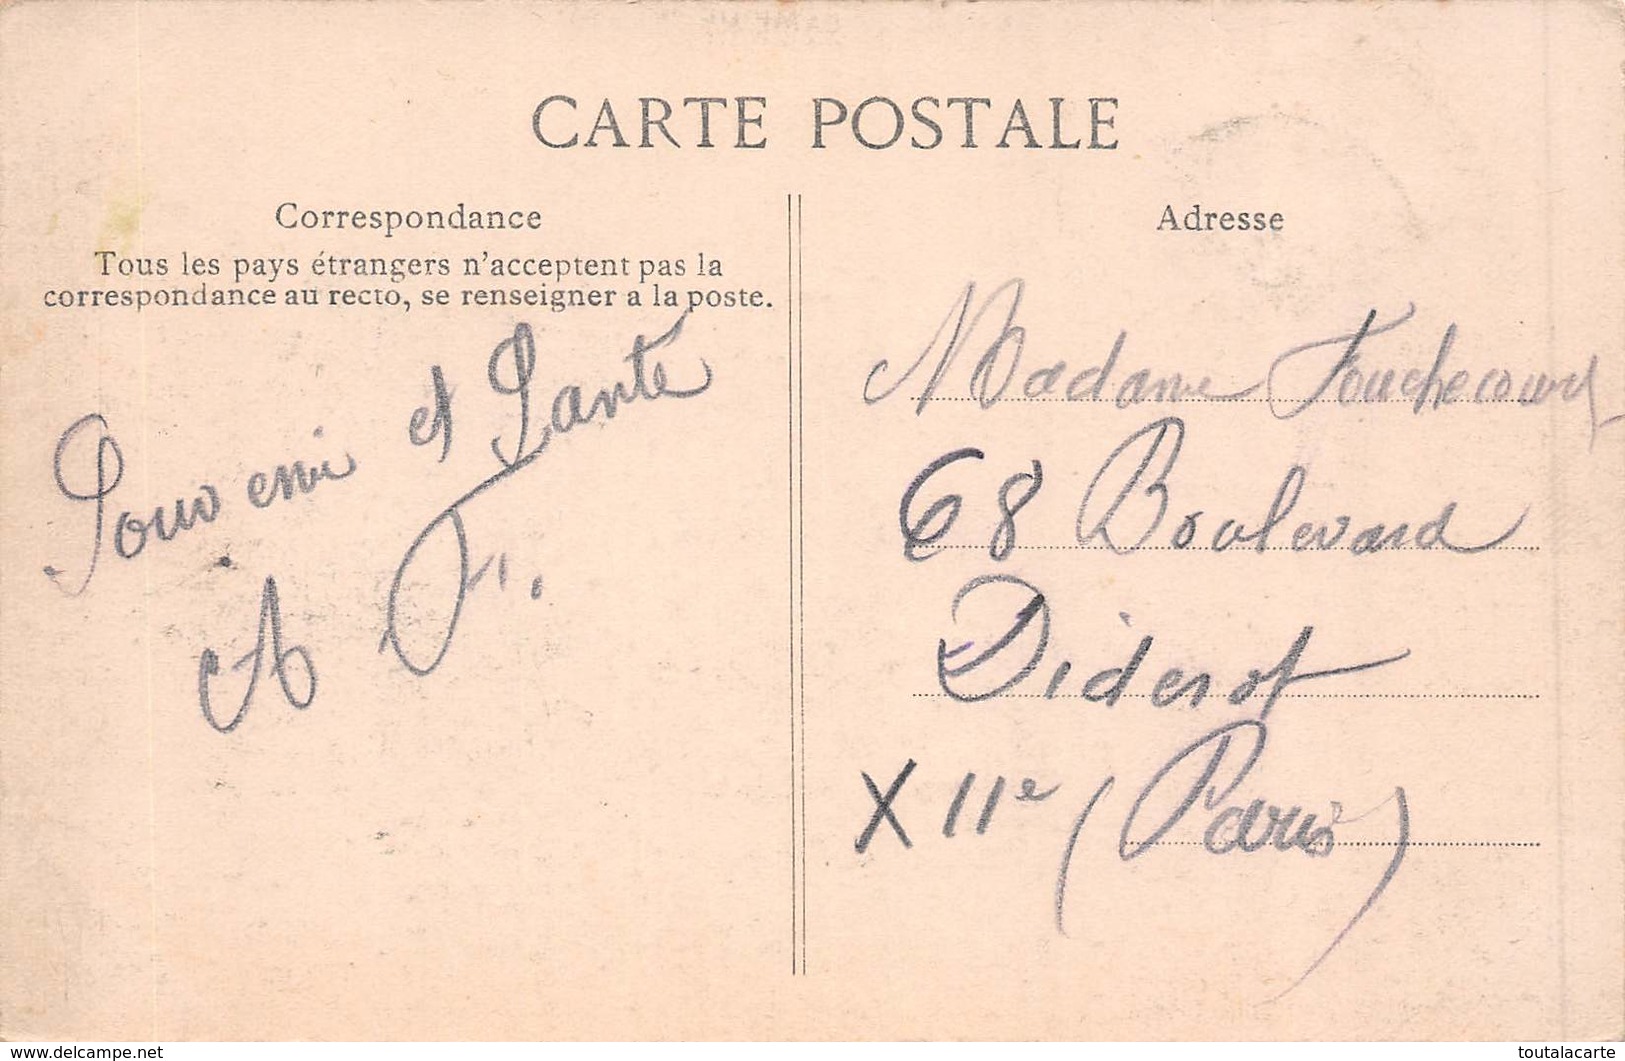 CARTE POSTALE
Correspondance
Tous les pays étrangers n'acceptent pas la
correspondance au recto, se renseigner a la poste.
Souvenir et Santé
A F.
Adresse
Madame Fouchecourt
68 Boulevard
Diderot
XIIe (Paris)
www.delcampe.net
toutalacarte